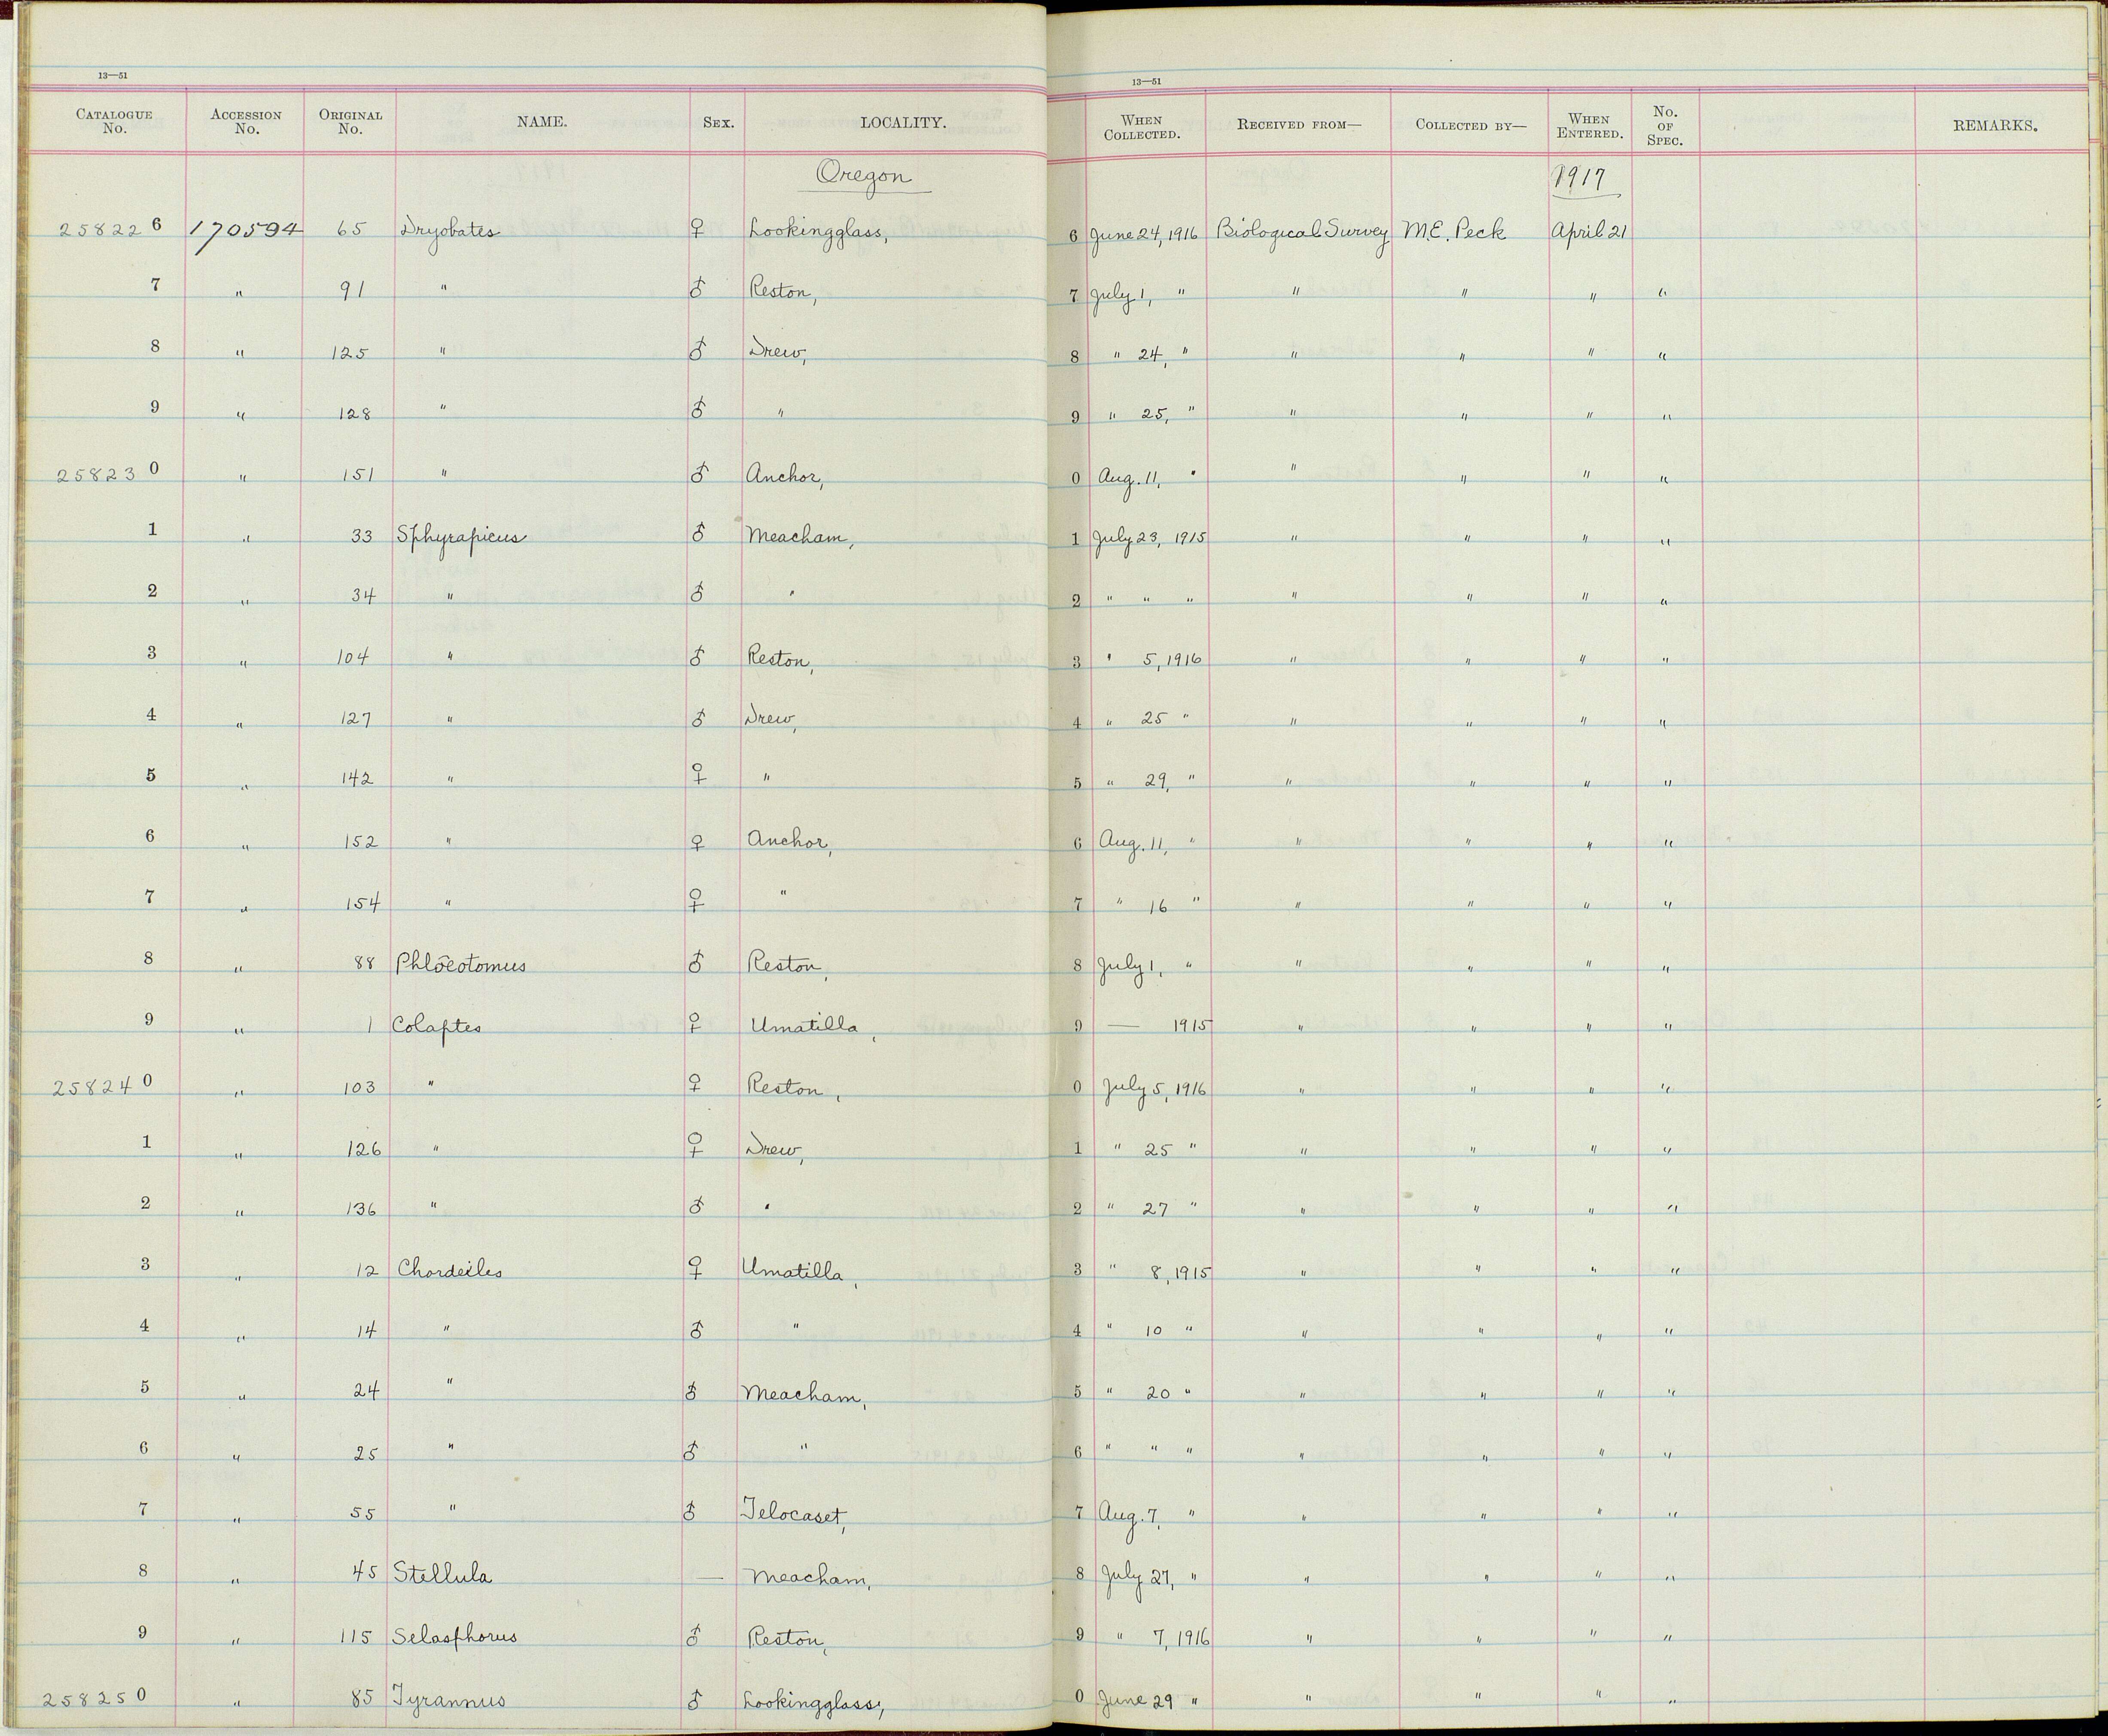 13—51 13—51
CATALOGUE No. ACCESSION No. ORIGINAL No. NAME. SEX. LOCALITY. WHEN COLLECTED. RECEIVED FROM— COLLECTED BY— WHEN ENTERED. No. OF SPEC. REMARKS.
Oregon 1917
258226 170594 65 Dryobates ♀ Lookingglass, 6 June 24, 1916 Biological Survey M.E. Peck April 21
7 " 91 " ♂ Reston, 7 July 1, " " " " "
8 " 125 " ♂ Drew, 8 " 24, " " " " "
9 " 128 " ♂ " 9 " 25, " " " " "
258230 " 151 " ♂ Anchor, 0 Aug. 11, " " " " "
1 " 33 Sphyrapicus ♂ Meacham, 1 July 23, 1915 " " " "
2 " 34 " ♂ " 2 " " " " " " "
3 " 104 " ♂ Reston, 3 " 5, 1916 " " " "
4 " 127 " ♂ Drew, 4 " 25 " " " " "
5 " 142 " ♀ " 5 " 29, " " " " "
6 " 152 " ♀ Anchor, 6 Aug. 11, " " " " "
7 " 154 " ♀ " 7 " 16 " " " " "
8 " 88 Phlöeotomus ♂ Reston, 8 July 1, " " " " "
9 " 1 Colaptes ♀ Umatilla, 9 — 1915 " " " "
258240 " 103 " ♀ Reston, 0 July 5, 1916 " " " "
1 " 126 " ♀ Drew, 1 " 25 " " " " "
2 " 136 " ♂ " 2 " 27 " " " " "
3 " 12 Chordeiles ♀ Umatilla, 3 " 8, 1915 " " " "
4 " 14 " ♂ " 4 " 10 " " " " "
5 " 24 " ♂ Meacham, 5 " 20 " " " " "
6 " 25 " ♂ " 6 " " " " " " "
7 " 55 " ♂ Telocaset, 7 Aug. 7, " " " " "
8 " 45 Stellula — Meacham, 8 July 27, " " " " "
9 " 115 Selasphorus ♂ Reston, 9 " 7, 1916 " " " "
258250 " 85 Tyrannus ♂ Lookingglass, 0 June 29 " " " " "